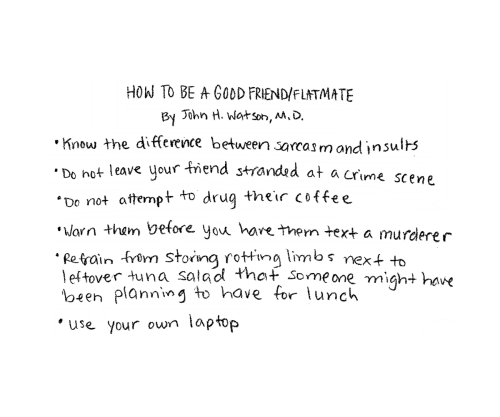 HOW TO BE A GOOD FRIEND/FLATMATE
By John H. Watson, M.D.
• Know the difference between sarcasm and insults
• Do not leave your friend stranded at a crime scene
• Do not attempt to drug their coffee
• Warn them before you have them text a murderer
• Refrain from storing rotting limbs next to
leftover tuna salad that someone might have
been planning to have for lunch
• use your own laptop